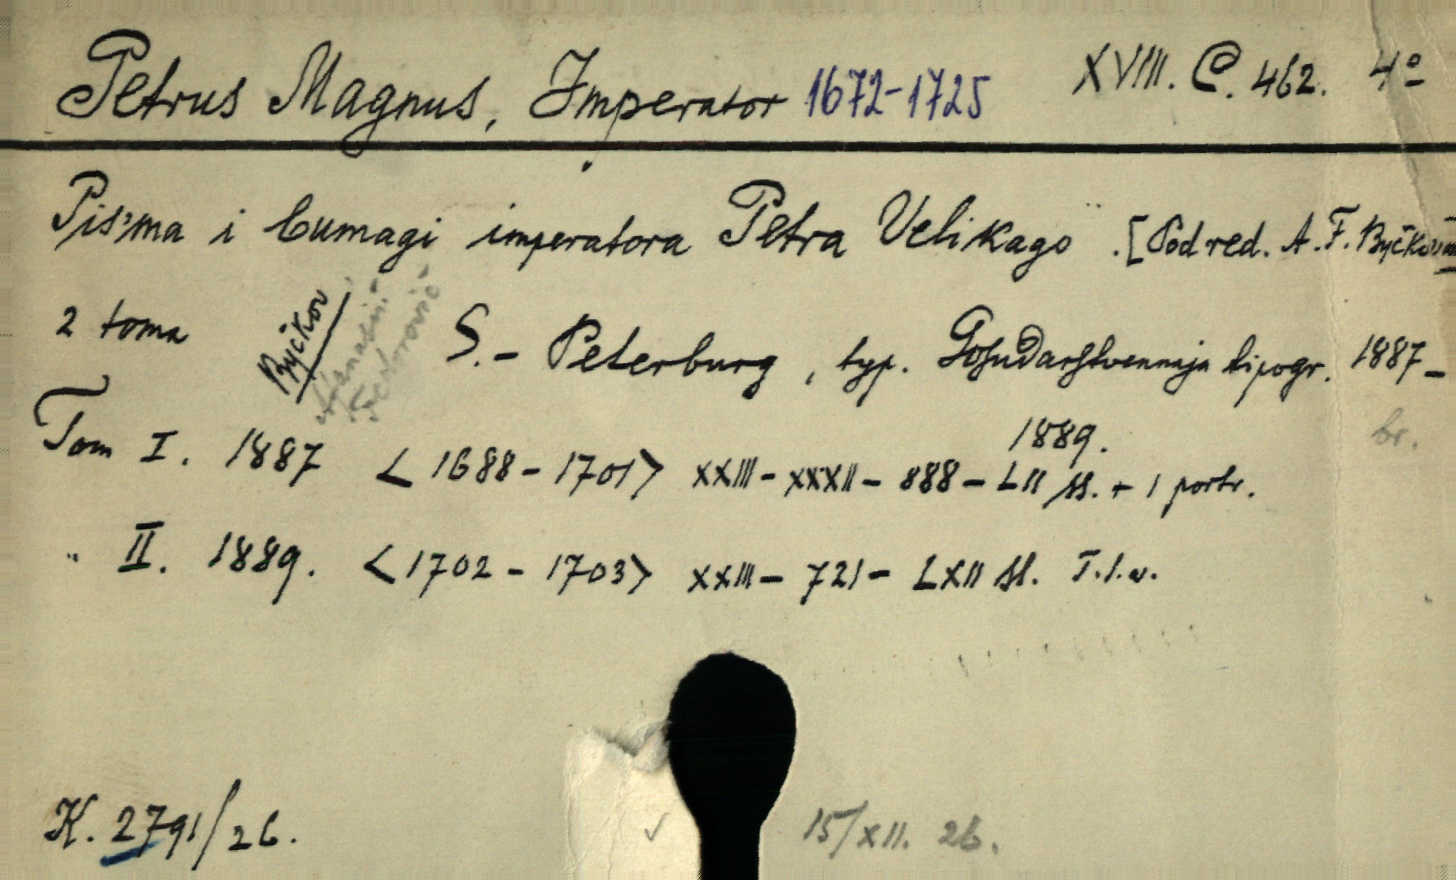 Petrus Magnus, Imperator 1672-1725 XVIII. C. 462. 4º
Piśma i bumagi imperatora Petra Velikago. [Pod red. A. F. Byčkova
2 toma Byčkov Afanasii Fedorovič S.- Peterburg, typ. Gosudarstvennaja tipogr. 1887-
1889. br.
Tom I. 1887 <1688-1701> XXIII-XXXII-888-LII ss. + 1 portr.
" II. 1889. <1702-1703> XXIII-721-LXII ss. T.s.w.
K. 2791/26. 15/XII. 26.